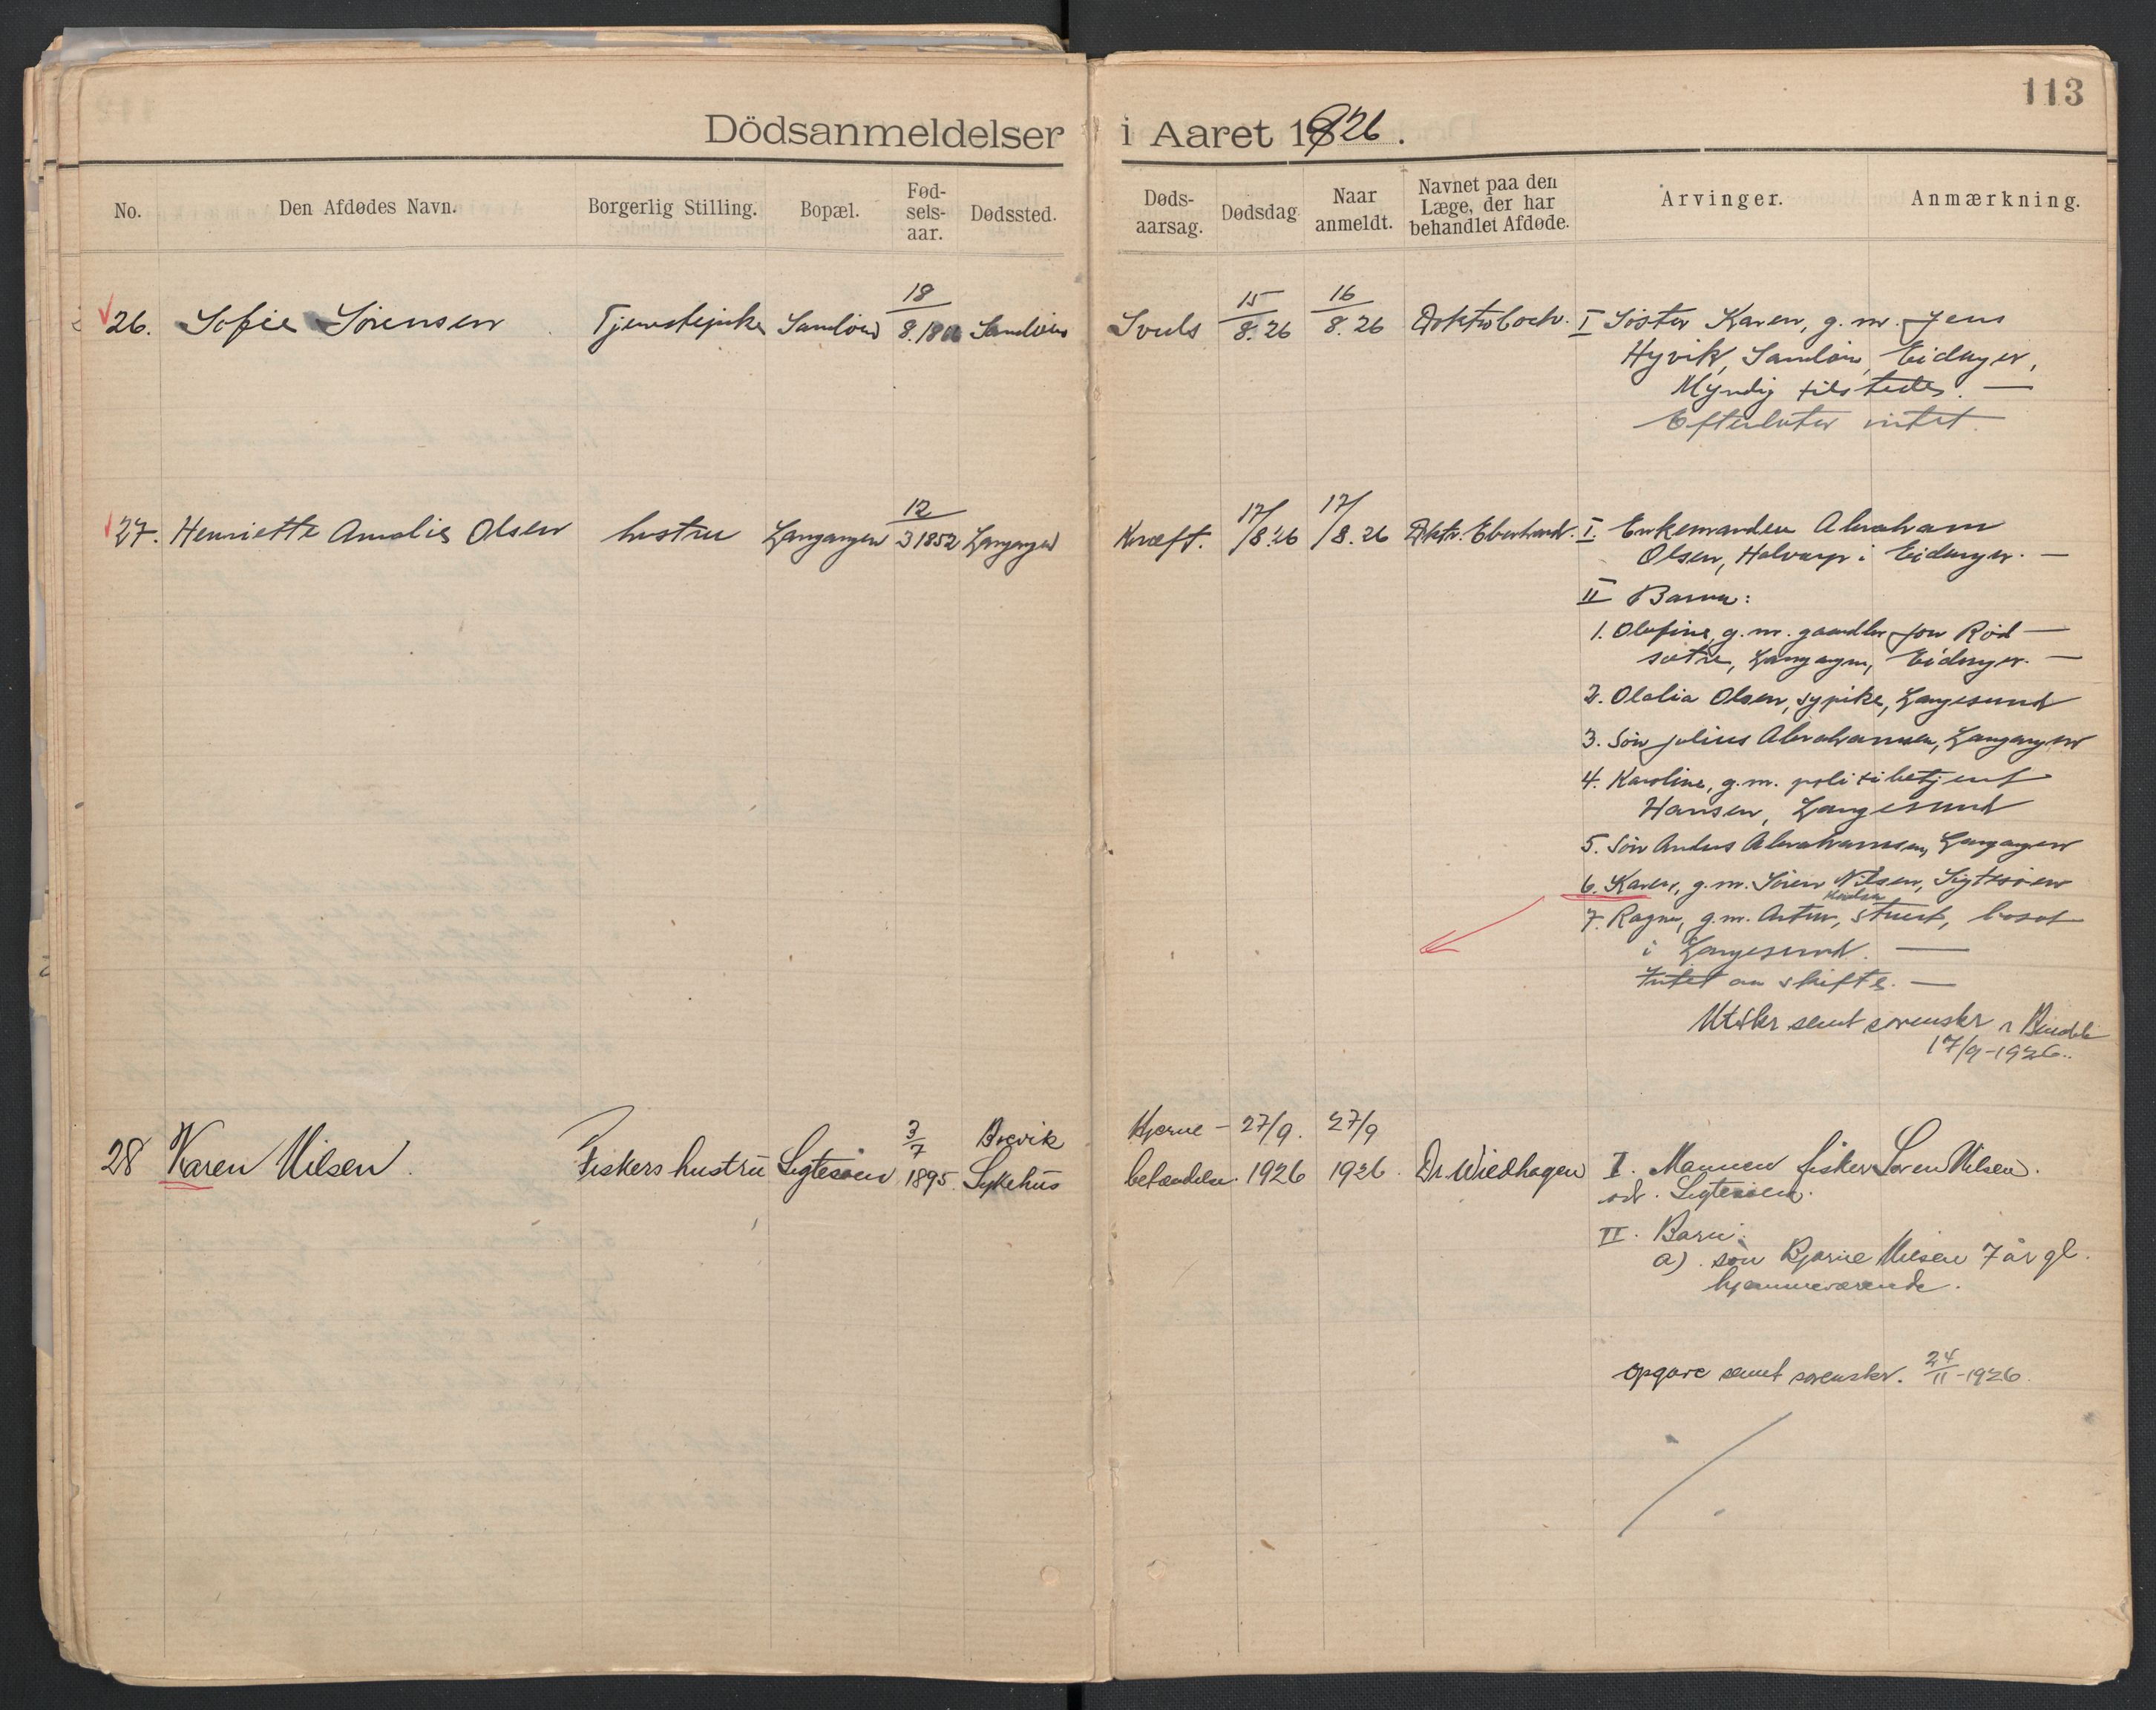 113
Dödsanmeldelser i Aaret 1926.
No. Den Afdødes Navn. Borgerlig Stilling. Bopæl. Fød-sels-aar. Dødssted. Døds-aarsag. Dødsdag Naar anmeldt. Navnet paa den Læge, der har behandlet Afdøde. Arvinger. Anmærkning.
26. Sofie Sörensen Tjenestepike Sandöen 18/8.18 Sandöen Svuls 15/8.26 16/8.26 I Söster Karen, g. m. Jens
Hyvik, Sandöen, Eidanger,
Myndig tilstede. —
Efterlater intet.
27. Henriette Amalie Olsen hustru Langangen 12/3 1852 Langangen Kræft. 17/8.26 17/8.26 Dktr. Eberhard. I. Enkemanden Abraham
Olsen, Halvarp i Eidanger. —
II Barn:
1. Olufine, g. m. gaardbr. Jon Röd-
sætre, Langangen, Eidanger. —
2. Olalia Olsen, sypike, Langesund
3. Sön Julius Abrahamsen, Langangen
4. Karoline, g. m. politibetjent
Hansen, Langesund
5. Sön Anders Abrahamsen, Langangen
6. Karen, g. m. Sören Nilsen, Sigtesöen
7. Ragna, g. m. Artur, stuert, bosat
i Langesund. —
Intet au skifte. —
Utskr sent sorenskr
17/9-1926.
28 Karen Nilsen. Fiskers hustru Sigtesöen 3/7 1895. Brevik Sykehus Hjerne-betændelse. 27/9. 1926 27/9 1926. Dr. Wiedhagen I. Mannen fisker Sören Nilsen.
adr. Sigtesöen.
II. Barn:
a). sön Bjarne Nilsen 7 år gl.
hjemmeværende.
Opgave sent sorenskr. 24/11-1926.